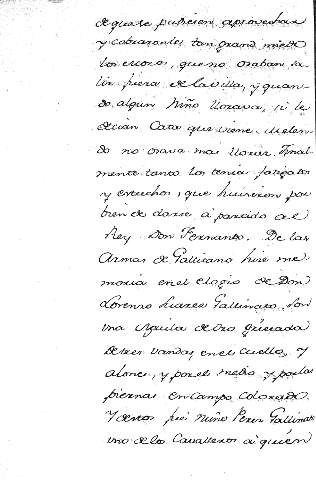 de que se pudiesen aprovechar
y cobraronles tan grande miedo
los moros, que no osaban sa-
lir fuera de la villa, y quan-
do algun Niño llorava, si le
decian Cata que viene
do no osava mas llorar. Final-
mente tanto los tenia fatigados
y estrechos, que huvieron por
bien de darse à partido à el
Rey Don Fernando. De las
Armas de Gallinato hise me-
moria en el elogio de Don
Lorenzo Suarez Gallinato, son
una Aguila de Oro
de tres vandas en el cuello, y
alones, y por el medio y por las
piernas en campo Colorado.
Y destos fue Nuño Perez Gallinato
uno de los Cavalleros à quien